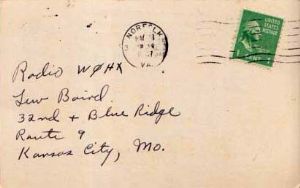 NORFOLK
VA.
UNITED STATES
1 CENT 1
Radio WØHX
Lew Baird
32nd + Blue Ridge
Route 9
Kansas City, Mo.